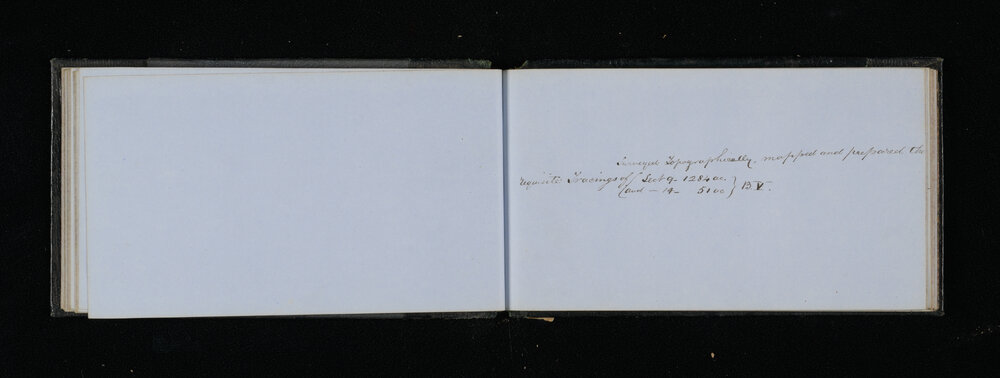 Surveyed Topographically, mapped and prepared the
requisite Tracings of { Sect 9 - 1284 ac. } B V.
{ and - 14 - 51 ac }